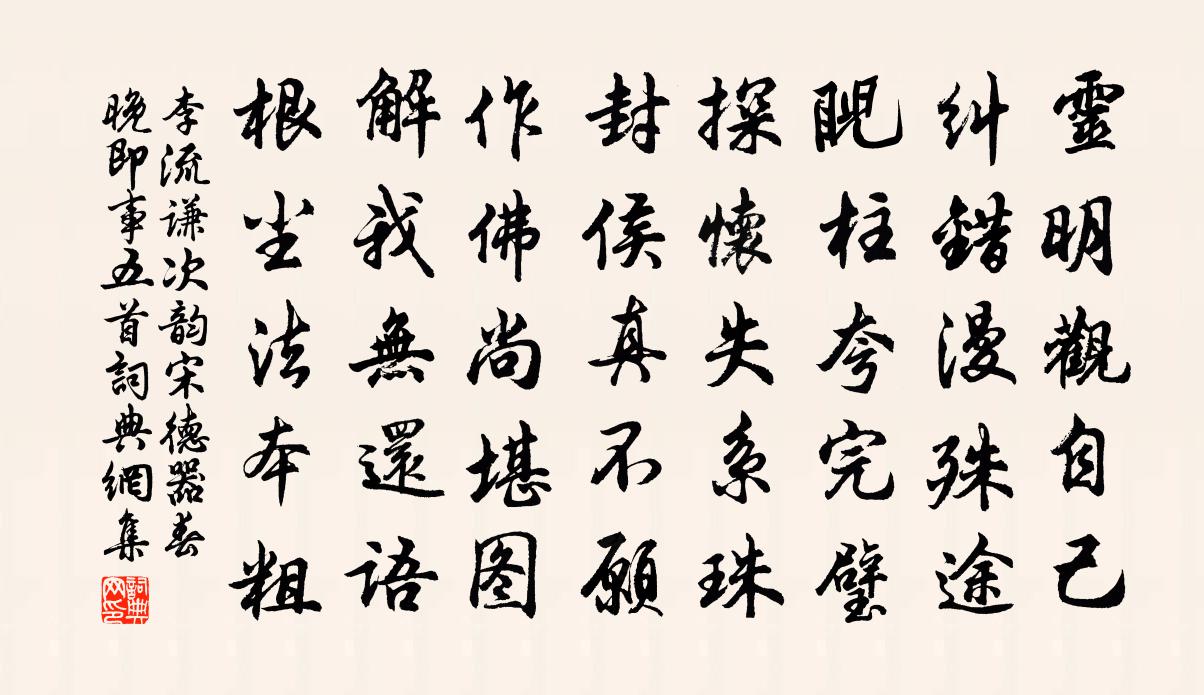 靈明觀自己
糾錯漫殊途
睨柱夸完璧
探懷失系珠
封侯真不願
作佛尚堪图
解我無還語
根尘法本粗
李流謙次韵宋德器春
晚即事五首詞典網集